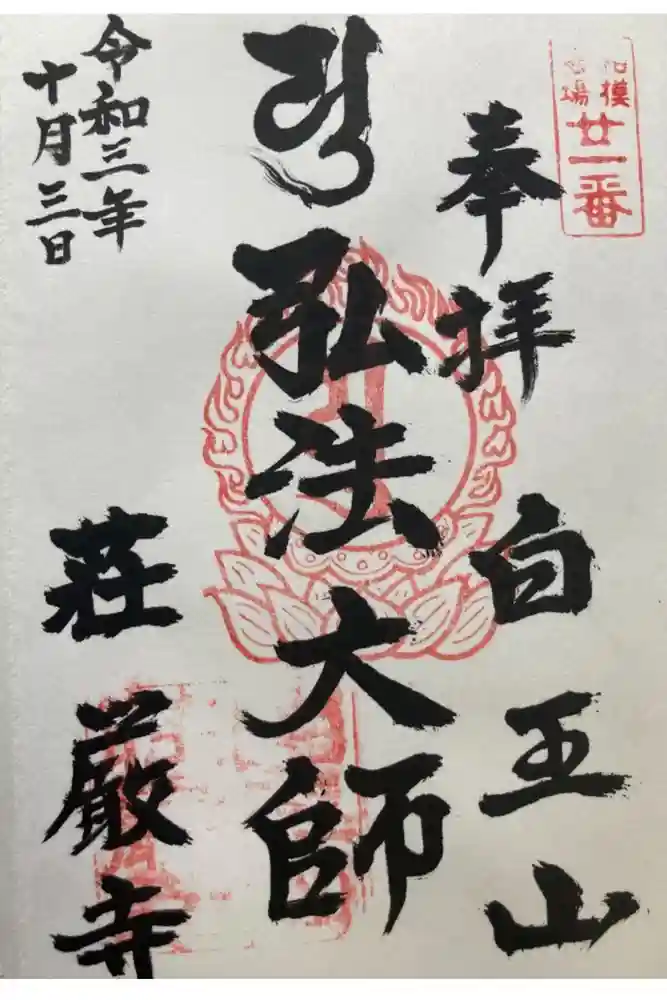 相模
霊場
廿一番
奉拝
白王山
弘法大師
令和三年
十月三日
荘厳寺